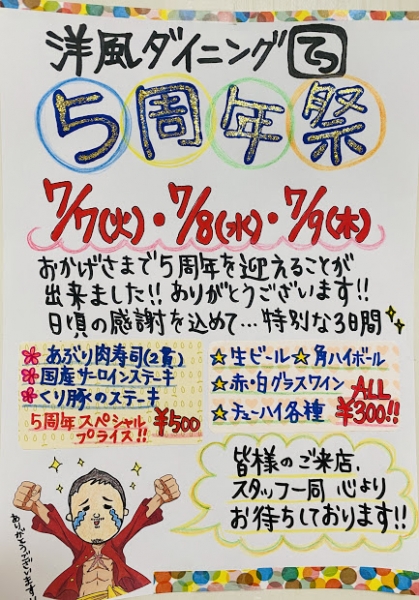 洋風ダイニング てつ
5周年祭
7/7(火)・7/8(水)・7/9(木)
おかげさまで5周年を迎えることが
出来ました!! ありがとうございます!!
日頃の感謝を込めて…特別な3日間
あぶり肉寿司(2貫)
国産サーロインステーキ
くり豚のステーキ
5周年スペシャル
プライス!! ¥500
★生ビール★角ハイボール
★赤・白グラスワイン
★チューハイ各種
ALL
¥300!!
皆様のご来店、
スタッフ一同 心より
お待ちしております!!
ありがとうございます!!